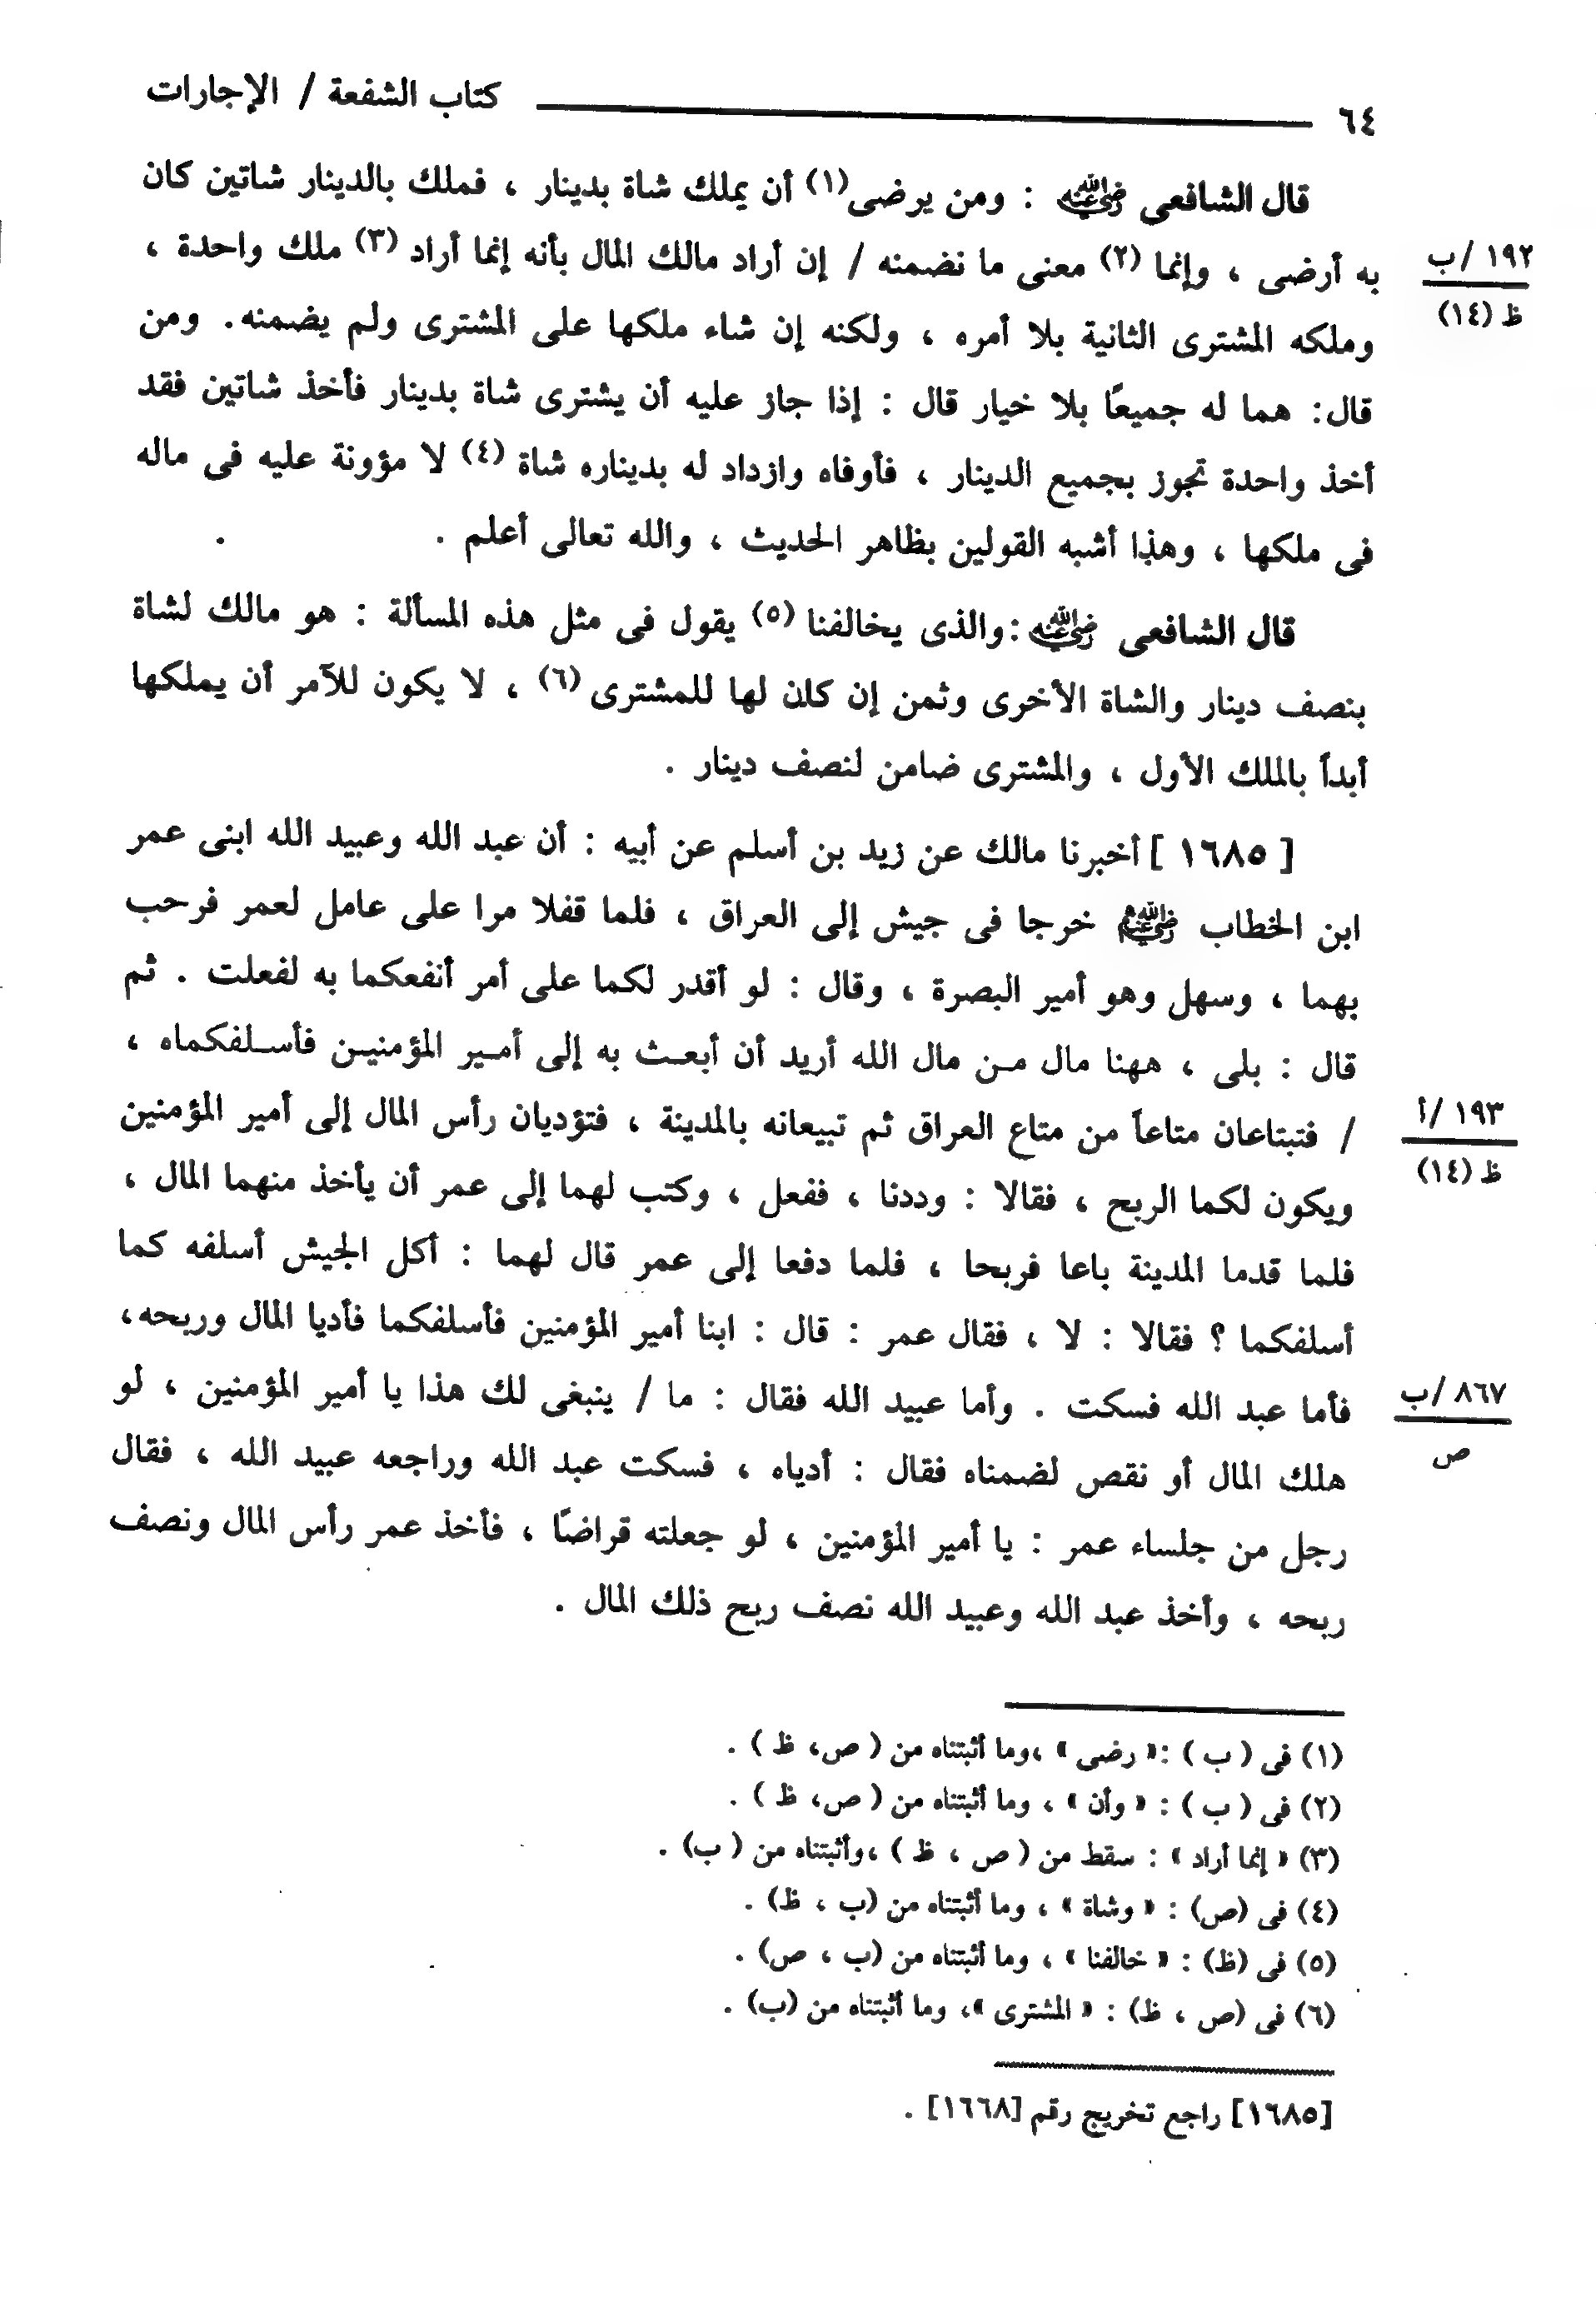 ٦٤ كتاب الشفعة / الإجارات
قال الشافعى رضي الله عنه : ومن يرضى(١) أن يملك شاة بدينار ، فملك بالدينار شاتين كان
به أرضى ، وإنما (٢) معنى ما نضمنه / إن أراد مالك المال بأنه إنما أراد (٣) ملك واحدة ،
١٩٢ /ب
ظ (١٤)
وملكه المشترى الثانية بلا أمره ، ولكنه إن شاء ملكها على المشترى ولم يضمنه. ومن
قال: هما له جميعًا بلا خيار قال : إذا جاز عليه أن يشترى شاة بدينار فأخذ شاتين فقد
أخذ واحدة تجوز بجميع الدينار ، فأوفاه وازداد له بديناره شاة (٤) لا مؤونة عليه فى ماله
فى ملكها ، وهذا أشبه القولين بظاهر الحديث ، والله تعالى أعلم .
قال الشافعى رضي الله عنه :والذى يخالفنا (٥) يقول فى مثل هذه المسألة : هو مالك لشاة
بنصف دينار والشاة الأخرى وثمن إن كان لها للمشترى (٦) ، لا يكون للآمر أن يملكها
أبداً بالملك الأول ، والمشترى ضامن لنصف دينار .
[ ١٦٨٥ ] أخبرنا مالك عن زيد بن أسلم عن أبيه : أن عبد الله وعبيد الله ابنى عمر
ابن الخطاب رضي الله عنهم خرجا فى جيش إلى العراق ، فلما قفلا مرا على عامل لعمر فرحب
بهما ، وسهل وهو أمير البصرة ، وقال : لو أقدر لكما على أمر أنفعكما به لفعلت . ثم
قال : بلى ، ههنا مال من مال الله أريد أن أبعث به إلى أمير المؤمنين فأسلفكماه ،
/ فتبتاعان متاعاً من متاع العراق ثم تبيعانه بالمدينة ، فتؤديان رأس المال إلى أمير المؤمنين
١٩٣ /أ
ظ (١٤)
ويكون لكما الربح ، فقالا : وددنا ، ففعل ، وكتب لهما إلى عمر أن يأخذ منهما المال ،
فلما قدما المدينة باعا فربحا ، فلما دفعا إلى عمر قال لهما : أكل الجيش أسلفه كما
أسلفكما ؟ فقالا : لا ، فقال عمر : قال : ابنا أمير المؤمنين فأسلفكما فأديا المال وربحه،
فأما عبد الله فسكت . وأما عبيد الله فقال : ما / ينبغى لك هذا يا أمير المؤمنين ، لو
٨٦٧ /ب
ص
هلك المال أو نقص لضمناه فقال : أدياه ، فسكت عبد الله وراجعه عبيد الله ، فقال
رجل من جلساء عمر : يا أمير المؤمنين ، لو جعلته قراضًا ، فأخذ عمر رأس المال ونصف
ربحه ، وأخذ عبد الله وعبيد الله نصف ربح ذلك المال .
(١) فى ( ب ) :« رضى » ،وما أثبتناه من ( ص، ظ ) .
(٢) فى ( ب ) : « وأن » ، وما أثبتناه من ( ص، ظ ) .
(٣) « إنما أراد » : سقط من ( ص ، ظ ) ،وأثبتناه من ( ب) .
(٤) فى (ص) : « وشاة » ، وما أثبتناه من (ب ، ظ) .
(٥) فى (ظ) : « خالفنا » ، وما أثبتناه من (ب ، ص) .
(٦) فى (ص ، ظ) : « المشترى »، وما أثبتناه من (ب) .
[١٦٨٥] راجع تخريج رقم [١٦٦٨] .